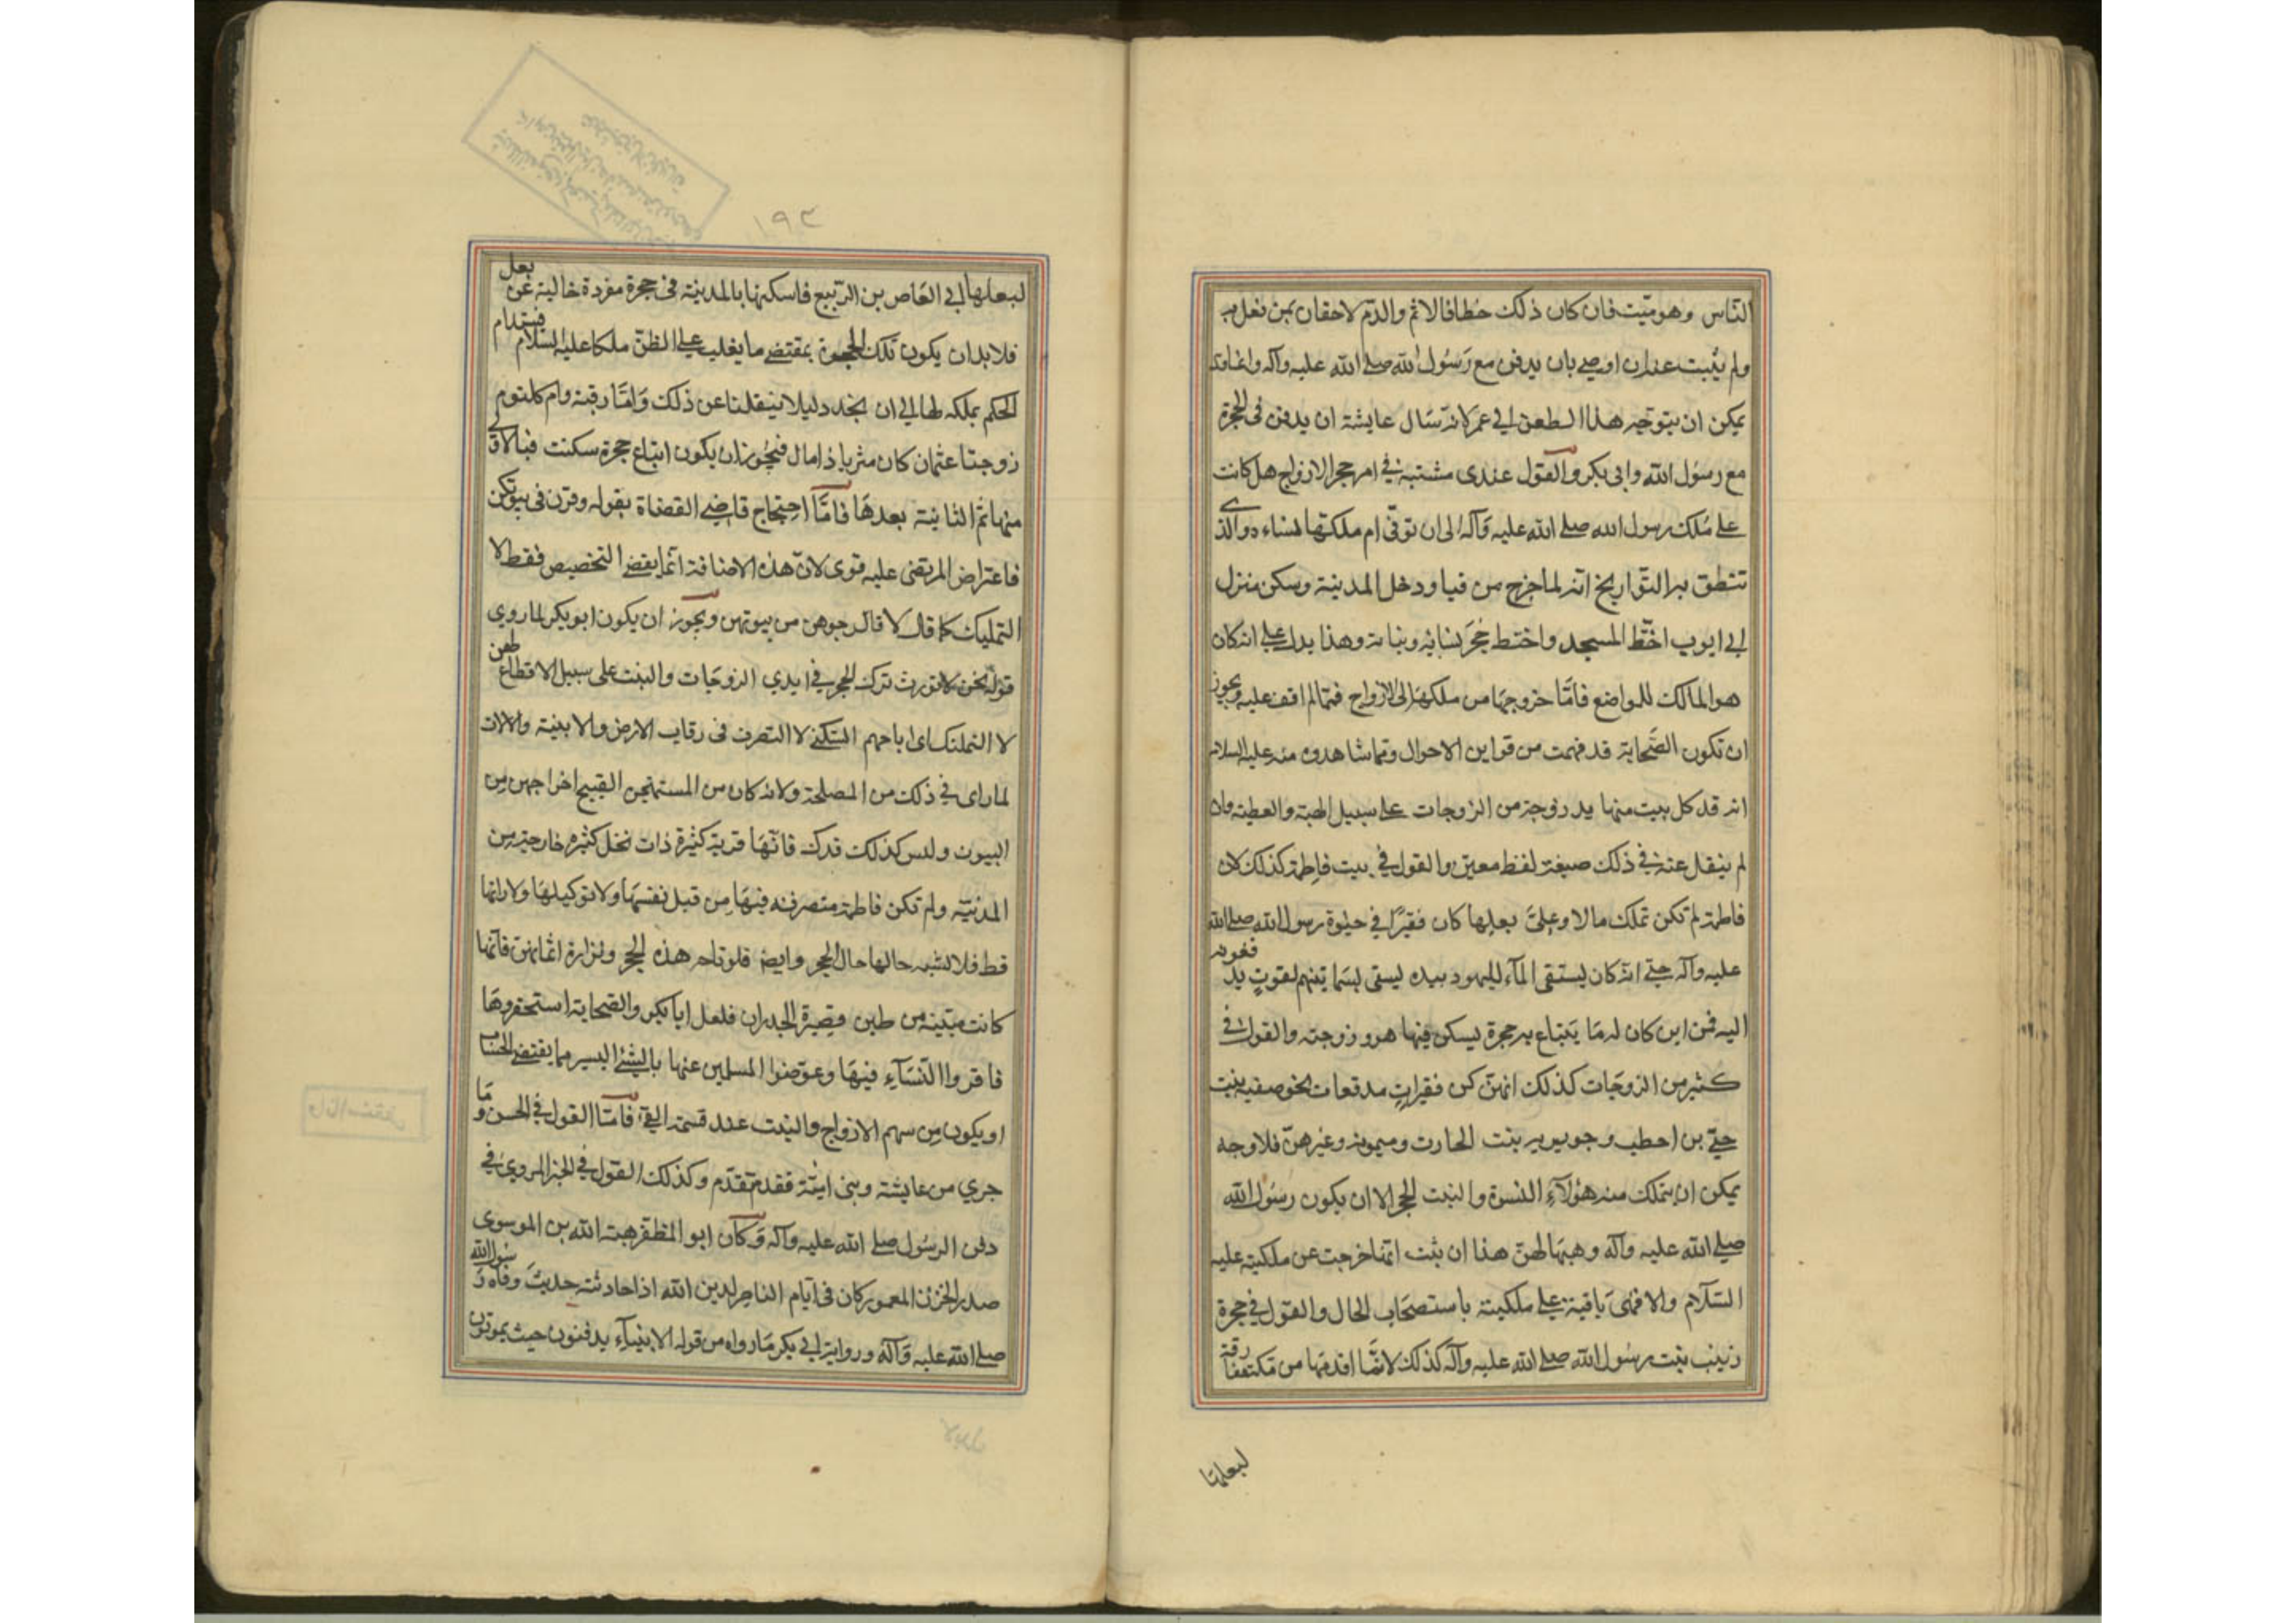 الناس وهو ميت فان كان ذلك خطا فالاثم والذم لاحقان بمن فعل به
ولم يثبت عندان اوصى بان يدفن مع رسول الله صلى الله عليه وآله وانما قد
يمكن ان يتوجه هذا الطعن الى عمر لانه سال عايشة ان يدفن فى الحجرة
مع رسول الله وابى بكر والقول عندى مشتبه فى امر حجر الازواج هل كانت
على ملك رسول الله صلى الله عليه وآله الى ان توفى ام ملكتها نساءه والذى
تنطق به التواريخ انه لما خرج من قبا ودخل المدينة وسكن منزل
ابى ايوب اختط المسجد واختط حجر نسائه وبناته وهذا يدل على انه كان
هو المالك للمواضع فاما خروجها من ملكه الى الازواج فمما لم اقف عليه ويجوز
ان تكون الصحابة قد فهمت من قراين الاحوال ومما شاهدوه منه عليه السلام
انه قد كل بيت منها يد زوجة من الزوجات على سبيل الهبة والعطية وان
لم ينقل عنه فى ذلك صيغة لفظ معين والقول فى بيت فاطمة كذلك لان
فاطمة لم تكن تملك مالا وعلى بعلها كان فقيرا فى حيوة رسول الله صلى الله
عليه وآله حتى انه كان يستقى المآء لليهود بيده يسقى بساتينهم لقوت يد فعونه
اليه فمن اين كان له ما يبتاع به حجرة يسكن فيها هو وزوجته والقول فى
كثير من الزوجات كذلك انهن كن فقيرات مدقعات نحو صفيه بنت
حى بن احطب وجويريه بنت الحارث وميمونة وغيرهن فلا وجه
يمكن ان يتملك منه هؤلآء النسوة والبنت الحجر الا ان يكون رسول الله
صلى الله عليه وآله وهبها لهن هذا ان ثبت انها خرجت عن ملكيته عليه
السلام والا فهى باقية على ملكيته باستصحاب الحال والقول فى حجرة
زينب بنت رسول الله صلى الله عليه وآله كذلك لانها اقدمها من مكة مفارقة
لبعلها
١٩٣
لبعلها ابى العاص بن الربيع فاسكنها بالمدينة فى حجرة مفردة خالية عن بعل
فلابد ان يكون تلك الحجرة بمقتضى ما يغلب على الظن ملكا عليه السلام فيستدام
الحكم بملكه لها الى ان نجد دليلا ينقلنا عن ذلك واما رقية وام كلثوم
زوجتا عثمان كان مثريا ذا مال فيجوز ان يكون ابتاع حجرة سكنت فيها الاولى
منهما ثم الثانية بعدها فاما احتجاج قاضى القضاة بقوله وقرن فى بيوتكن
فاعتراض المرتضى عليه قوى لان هذه الاضافة انما يقضى التخصيص فقط لا
التمليك كما قال لا تخرجوهن من بيوتهن ويجوز ان يكون ابو بكر لما روى
قوله نحن لا نورث ترك الحجر فى ايدى الزوجات والبنت على سبيل الاقطاع لهن
لا التمليك اى اباحهم السكنى لا التصرف فى رقاب الارض والابنية والالات
لما راى فى ذلك من المصلحة ولانه كان من المستهجن القبيح اخراجهن من
البيوت وليس كذلك فدك فانها قرية كثيرة ذات نخل كثيره خارجة من
المدينة ولم تكن فاطمة متصرفة فيها من قبل نفسها ولا توكيلها ولا راتها
قط فلا تشبه حالها حال الحجر وايض فلو تاحر هذه الحجر ونزارة اثمانهن فانها
كانت مبنية من طين قصيرة الجدران فلعل ابا بكر والصحابة استحقروها
فاقروا النسآء فيها وعوضوا المسلمين عنها بالشئ اليسير مما يقتضى الحساب
او يكون من سهم الازواج والبنت عند قسمة الفئ فاما القول فى الحسن وما
جرى من عايشة وبنى امية فقد تقدم وكذلك القول فى الخبر المروى فى
دفن الرسول صلى الله عليه وآله وكان ابو المظفر هبة الله بن الموسوى
صدر المخزن المعمور كان فى ايام الناصر لدين الله اذا حادثته حديث وفاه رسول الله
صلى الله عليه وآله ورواية ابى بكر ما رواه من قوله الانبيآء يدفنون حيث يموتون